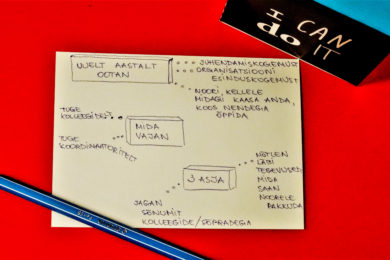 I CAN
do IT
UUELT AASTALT
OOTAN
JUHENDAMISKOGEMUST
ORGANISATSIOONI
ESINDUSKOGEMUST
NOORI, KELLELE
MIDAGI KAASA ANDA,
KOOS NENDEGA
ÕPPIDA
TUGE
KOLLEEGIDELT
MIDA
VAJAN
TUGE
KOORDINAATORITELT
3 ASJA
MÕTLEN
LÄBI
TEGEVUSED
MIDA
SAAN
NOORELE
PAKKUDA
JAGAN
SÕNUMIT
KOLLEEGIDE/SÕPRADEGA